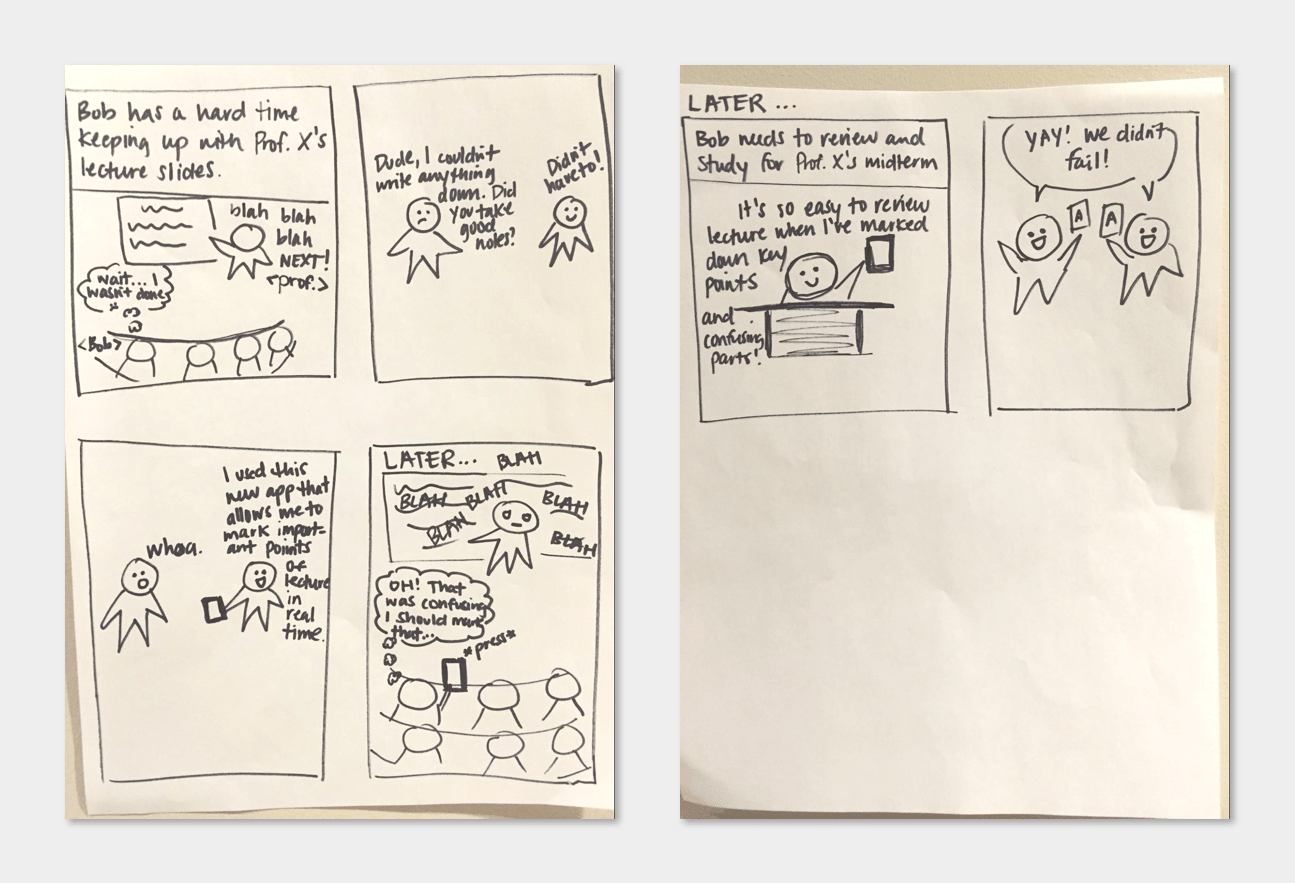 Bob has a hard time
keeping up with Prof. X's
lecture slides.
blah blah
blah
NEXT!
<prof.>
wait... I
wasn't done
<Bob>
Dude, I couldn't
write anything
down. Did
you take
good
notes?
Didn't
have to!
whoa.
I used this
new app that
allows me to
mark import-
ant points
of
lecture
in
real
time.
LATER... BLAH
BLAH BLAH BLAH
BLAH BLAH
OH! That
was confusing
I should mark
that...
*press*
LATER ...
Bob needs to review and
study for Prof. X's midterm
It's so easy to review
lecture when I've marked
down key
points
and
confusing
parts!
YAY! We didn't
fail!
A A